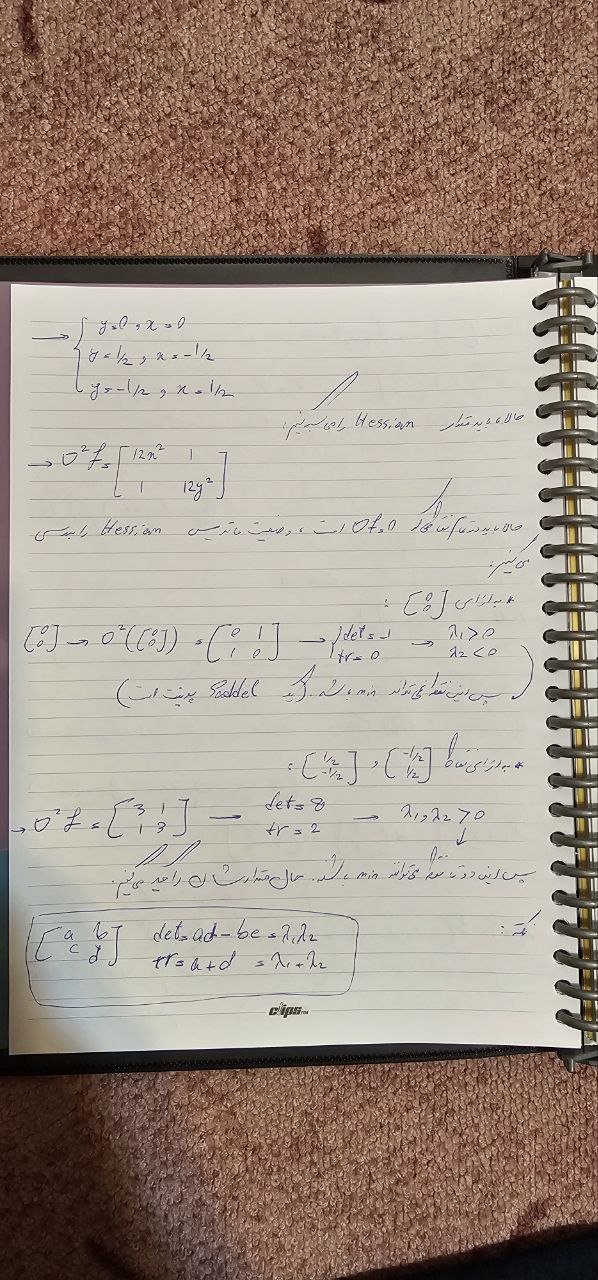 → { y=0 , x=0
y=1/2 , x=-1/2
y=-1/2 , x=1/2
حالا باید مقدار Hessian را می‌بینیم:
→ ∇²f = [12x² 1
1 12y²]
حالا باید در تمام نقاطی که ∇f=0 است، وضعیت ماتریس Hessian را بررسی
می‌کنیم:
* به ازای [0 0] :
[0 0] → ∇²([0 0]) = [0 1 1 0] → { det=-1 tr=0 → λ₁>0 λ₂<0
پس این نقطه نمی‌تواند min باشد. (یک Saddel پوینت است)
* به ازای نقاط [-1/2 1/2] , [1/2 -1/2] :
→ ∇²f = [3 1 1 3] → det=8 tr=2 → λ₁,λ₂ >0
↓
پس این دو تا نقطه می‌تواند min باشد. حال مقدارشان را چک می‌کنیم.
نکته:
[a b c d] det=ad-bc=λ₁λ₂
tr=a+d =λ₁+λ₂
clips